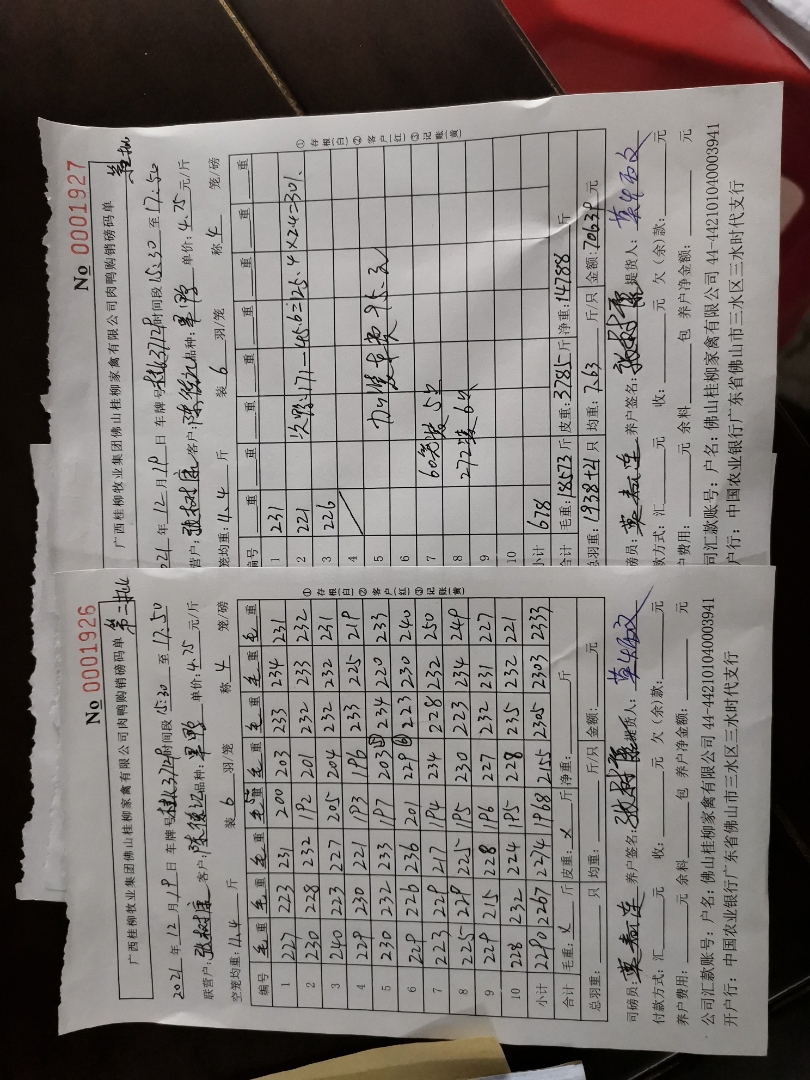 No 0001926
广西桂柳牧业集团佛山桂柳家禽有限公司肉鸭购销磅码单 第二批
2021 年 12 月 19 日 车牌号 时间段 15:30 至 17:50
联营户: 张树康 客户: 品种: 单价: 4.75 元/斤
空笼均重: 11.4 斤 装 6 羽/笼 称 4 笼/磅
编号 毛重 毛重 毛重 毛重 毛重 毛重 毛重 毛重
1 227 223 231 200 203 233 234 231
2 230 228 232 192 201 232 233 232
3 240 223 227 205 204 232 232 231
4 229 230 221 193 196 233 225 219
5 230 232 233 197 203⑤ 234 220 233
6 229 226 236 201 229⑥ 223 230 240
7 223 229 217 194 234 228 232 250
8 225 229 225 195 230 223 234 249
9 229 215 228 196 227 232 231 227
10 228 232 224 195 228 235 232 221
小计 2290 2267 2274 1968 2155 2305 2303 2333
合计 毛重: 斤 皮重: 斤 净重: 斤
总羽重: 只 均重: 斤/只 金额: 元
①存根(白) ②客户(红) ③记账(黄)
司磅员: 养户签名: 张树康 提货人:
付款方式: 汇 元 收: 元 欠(余)款: 元
养户费用: 元 余料 包 养户净金额: 元
公司汇款账号: 户名: 佛山桂柳家禽有限公司 44-442101040003941
开户行: 中国农业银行广东省佛山市三水区三水时代支行
No 0001927
广西桂柳牧业集团佛山桂柳家禽有限公司肉鸭购销磅码单
2021 年 12 月 19 日 车牌号 时间段 15:30 至 17:50
营户: 张树康 客户: 品种: 单价: 4.75 元/斤
笼均重: 11.4 斤 装 6 羽/笼 称 4 笼/磅
编号 重 重 重 重 重 重 重 重
1 231
2 221 次鸭: 171-45.6=125.4×2.4=301.
3 226
4
5
6
7 60笼装5只
8 272装6只
9
10
小计 678
合计 毛重: 18573 斤 皮重: 3785 斤 净重: 14788 斤
总羽重: 1938+21 只 均重: 7.63 斤/只 金额: 70639 元
①存根(白) ②客户(红) ③记账(黄)
磅员: 养户签名: 张树康 提货人:
款方式: 汇 元 收: 元 欠(余)款: 元
户费用: 元 余料 包 养户净金额: 元
司汇款账号: 户名: 佛山桂柳家禽有限公司 44-442101040003941
户行: 中国农业银行广东省佛山市三水区三水时代支行